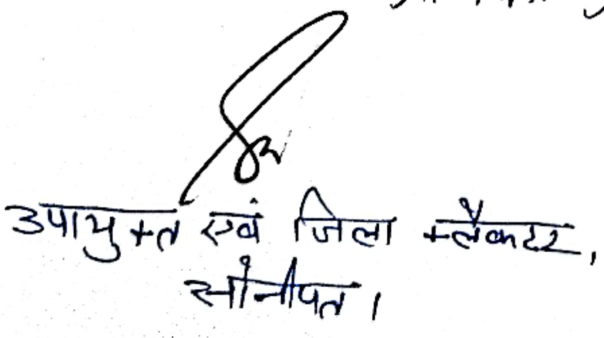 उपायुक्त एवं जिला क्लैक्टर,
सोनीपत।